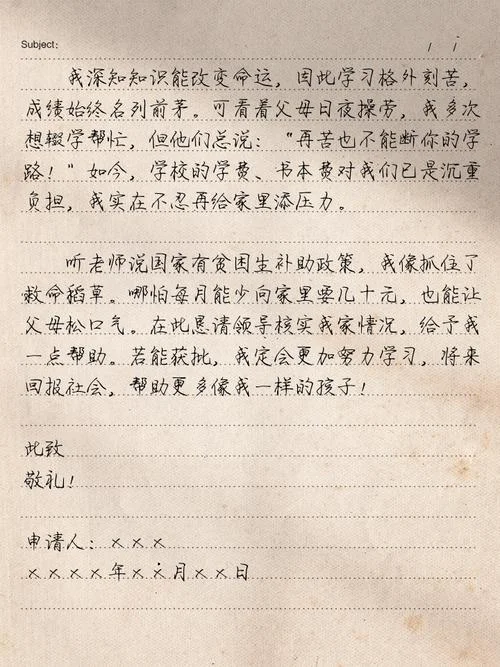 Subject:
/ /
我深知知识能改变命运，因此学习格外刻苦，
成绩始终名列前茅。可看着父母日夜操劳，我多次
想辍学帮忙，但他们总说：“再苦也不能断你的学
路！”如今，学校的学费、书本费对我们已是沉重
负担，我实在不忍再给家里添压力。
听老师说国家有贫困生补助政策，我像抓住了
救命稻草。哪怕每月能少向家里要几十元，也能让
父母松口气。在此恳请领导核实我家情况，给予我
一点帮助。若能获批，我定会更加努力学习，将来
回报社会，帮助更多像我一样的孩子！
此致
敬礼！
申请人：×××
××××年××月××日